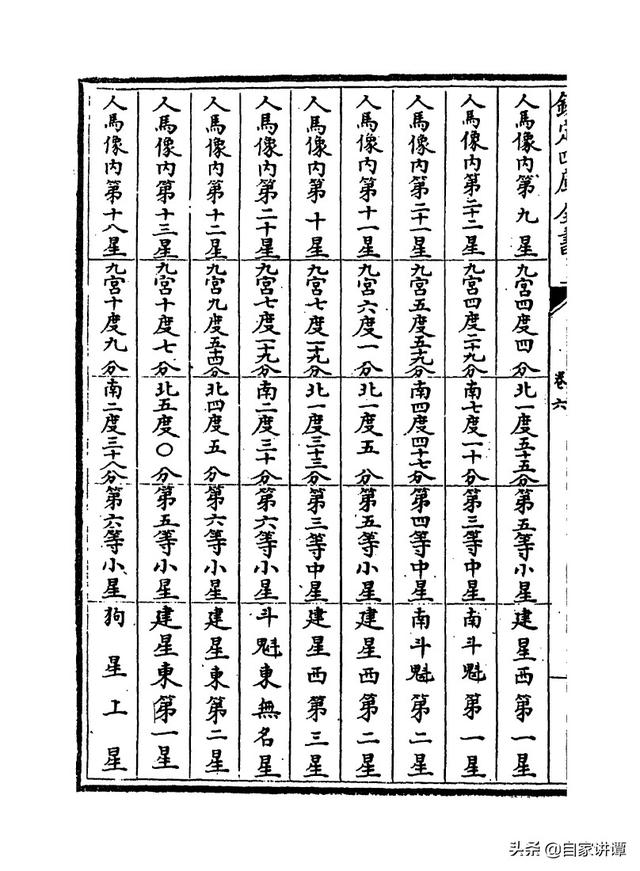 欽定四庫全書
卷六
人馬像内第九星 九宮四度四分 北一度五十五分 第五等小星 建星西第一星
人馬像内第二十二星 九宮四度二十九分 南七度一十分 第三等中星 南斗魁第一星
人馬像内第二十一星 九宮五度五十九分 南四度四十七分 第四等中星 南斗魁第二星
人馬像内第十一星 九宮六度一分 北一度五分 第五等小星 建星西第二星
人馬像内第十星 九宮七度一十九分 北一度三十三分 第三等中星 建星西第三星
人馬像内第二十星 九宮七度二十九分 南二度三十分 第六等小星 斗魁東無名星
人馬像内第十二星 九宮九度五十四分 北四度五分 第六等小星 建星東第二星
人馬像内第十三星 九宮十度七分 北五度〇分 第五等小星 建星東第一星
人馬像内第十八星 九宮十度九分 南二度三十八分 第六等小星 狗星上星
头条 @自家讲谭